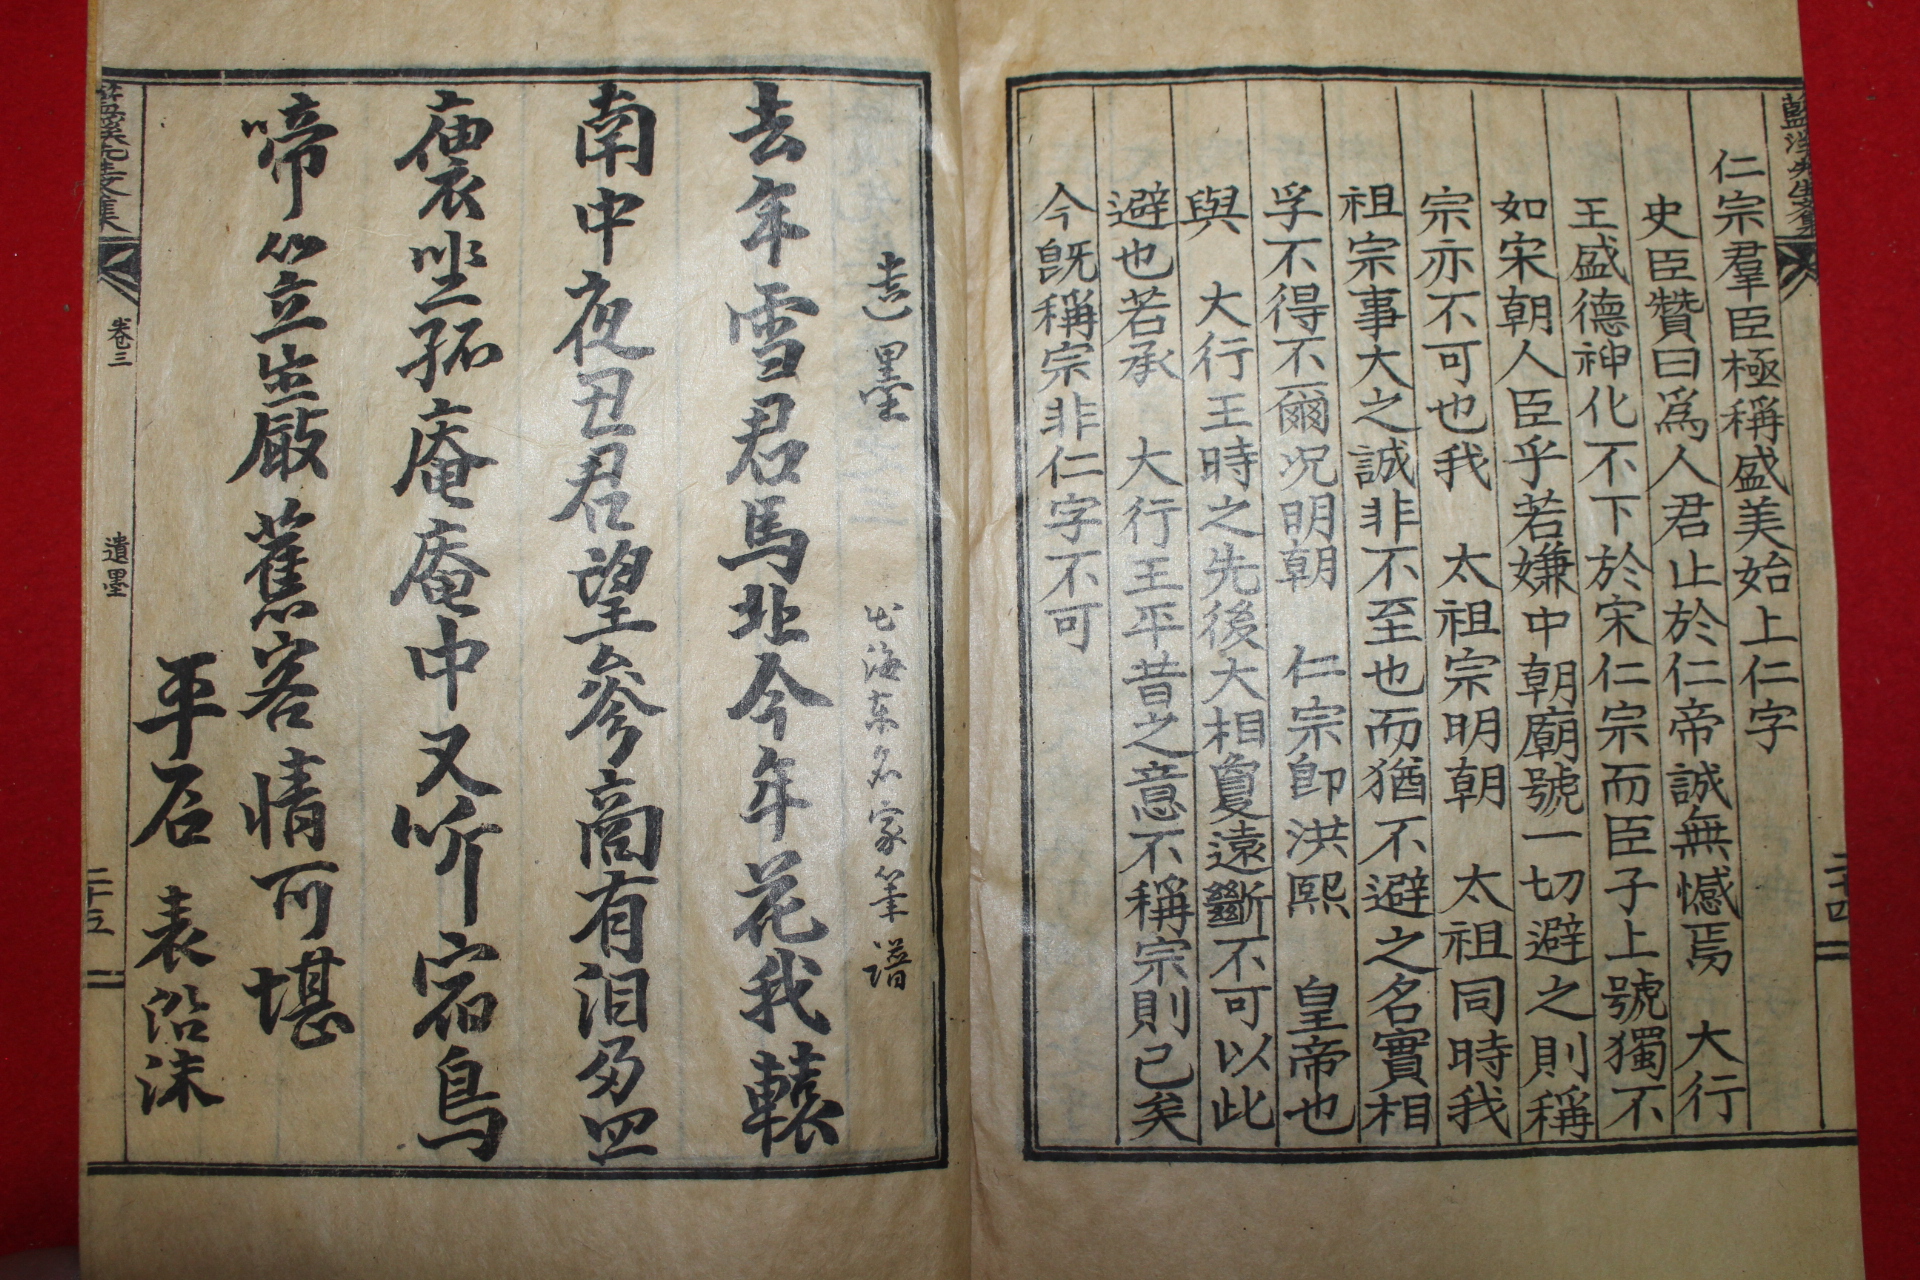 仁宗羣臣極稱盛美始上仁字
史臣贊曰爲人君止於仁帝誠無憾焉 大行
王盛德神化不下於宋仁宗而臣子上號獨不
如宋朝人臣乎若嫌中朝廟號一切避之則稱
宗亦不可也我 太祖宗明朝 太祖同時我
祖宗事大之誠非不至也而猶不避之名實相
孚不得不爾况明朝 仁宗卽洪熙 皇帝也
與 大行王時之先後大相敻遠斷不可以此
避也若承 大行王平昔之意不稱宗則已矣
今旣稱宗非仁字不可
遺墨 出海東名家筆譜
去年雪君馬北今年花我轅
南中夜丑君望參商有泪多
坐孤庵庵中又听宿鳥
啼 舊客情可堪
平石
卷三
遺墨
二十五
二十四